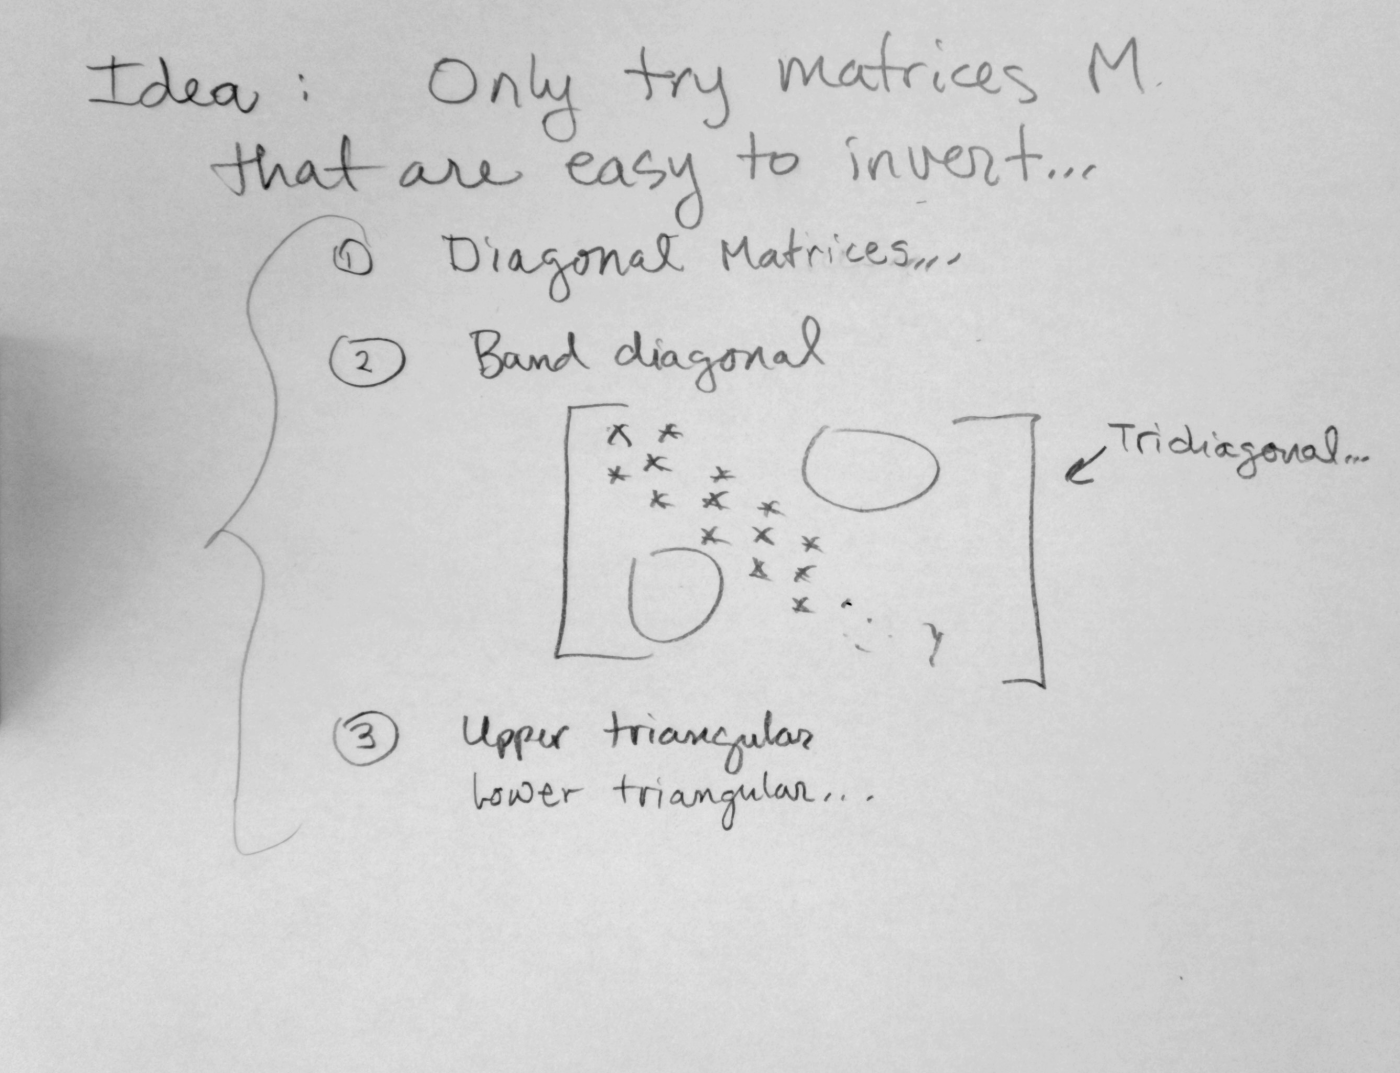 Idea : Only try matrices M.
that are easy to invert...
① Diagonal Matrices...
② Band diagonal
x x
x x x
x x x
x x x
x x
x
Tridiagonal...
③ Upper triangular
Lower triangular...